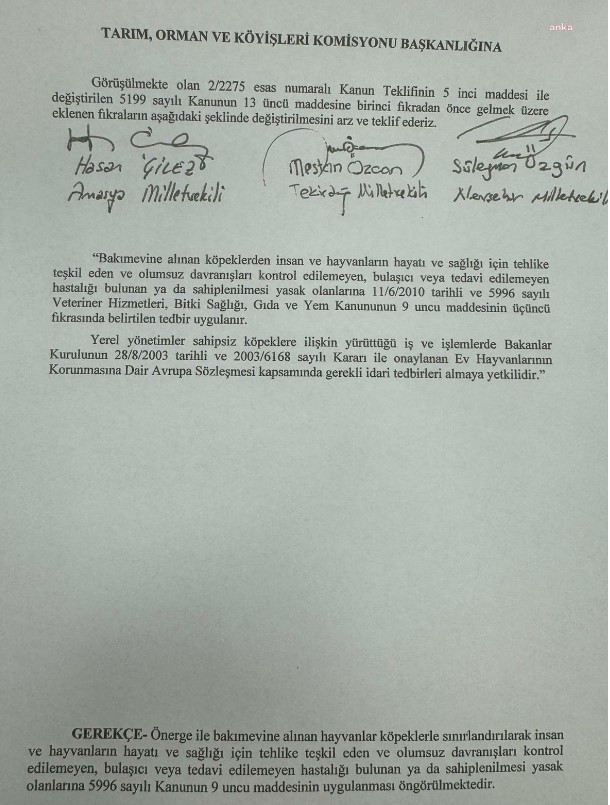 anka
TARIM, ORMAN VE KÖYİŞLERİ KOMİSYONU BAŞKANLIĞINA
Görüşülmekte olan 2/2275 esas numaralı Kanun Teklifinin 5 inci maddesi ile
değiştirilen 5199 sayılı Kanunun 13 üncü maddesine birinci fıkradan önce gelmek üzere
eklenen fıkraların aşağıdaki şeklinde değiştirilmesini arz ve teklif ederiz.
Hasan ÇİLEZ Mestan Özcan Süleyman Özgün
Amasya Milletvekili Tekirdağ Milletvekili Nevşehir Milletvekil
“Bakımevine alınan köpeklerden insan ve hayvanların hayatı ve sağlığı için tehlike
teşkil eden ve olumsuz davranışları kontrol edilemeyen, bulaşıcı veya tedavi edilemeyen
hastalığı bulunan ya da sahiplenilmesi yasak olanlarına 11/6/2010 tarihli ve 5996 sayılı
Veteriner Hizmetleri, Bitki Sağlığı, Gıda ve Yem Kanununun 9 uncu maddesinin üçüncü
fıkrasında belirtilen tedbir uygulanır.
Yerel yönetimler sahipsiz köpeklere ilişkin yürüttüğü iş ve işlemlerde Bakanlar
Kurulunun 28/8/2003 tarihli ve 2003/6168 sayılı Kararı ile onaylanan Ev Hayvanlarının
Korunmasına Dair Avrupa Sözleşmesi kapsamında gerekli idari tedbirleri almaya yetkilidir.”
GEREKÇE- Önerge ile bakımevine alınan hayvanlar köpeklerle sınırlandırılarak insan
ve hayvanların hayatı ve sağlığı için tehlike teşkil eden ve olumsuz davranışları kontrol
edilemeyen, bulaşıcı veya tedavi edilemeyen hastalığı bulunan ya da sahiplenilmesi yasak
olanlarına 5996 sayılı Kanunun 9 uncu maddesinin uygulanması öngörülmektedir.